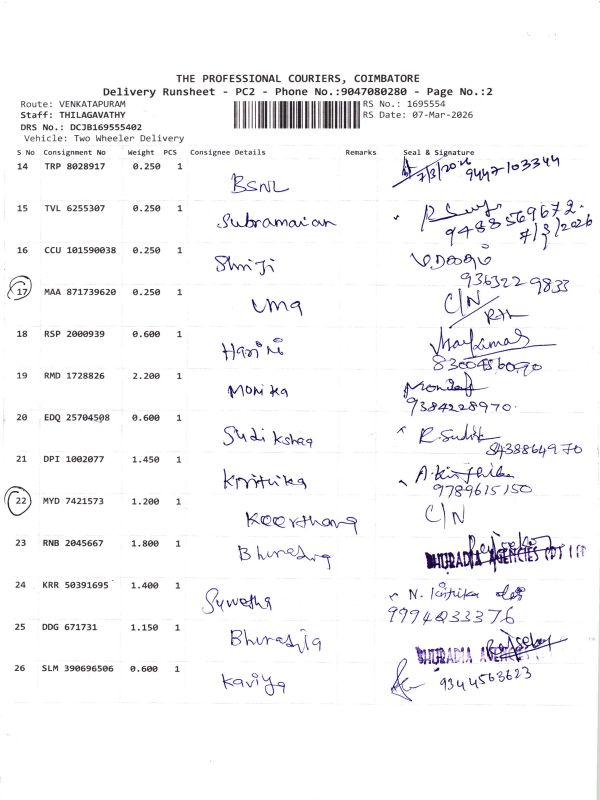 THE PROFESSIONAL COURIERS, COIMBATORE
Delivery Runsheet - PC2 - Phone No.:9047080280 - Page No.:2
Route: VENKATAPURAM RS No.: 1695554
Staff: THILAGAVATHY RS Date: 07-Mar-2026
DRS No.: DCJB169555402
Vehicle: Two Wheeler Delivery
S No Consignment No Weight PCS Consignee Details Remarks Seal & Signature
14 TRP 8028917 0.250 1 BSNL 7/3/2026 9447103344
15 TVL 6255307 0.250 1 Subramaian 9488569672.
7/3/2026
16 CCU 101590038 0.250 1 Shriji
9363229833
17 MAA 871739620 0.250 1 Uma C/N
18 RSP 2000939 0.600 1 Harini
8300456090
19 RMD 1728826 2.200 1 Monika
9384228970.
20 EDQ 25704508 0.600 1 Sudikshaa R. Sudik
8438864970
21 DPI 1002077 1.450 1 Krithika A. Kirthika
9789615150
22 MYD 7421573 1.200 1 Keerthana C/N
23 RNB 2045667 1.800 1 BHURADIA AGENCIES
24 KRR 50391695 1.400 1 Suwetha N. Kirthika
9994033376
25 DDG 671731 1.150 1 BHURADIA
26 SLM 390696506 0.600 1 Kaviya 9344563623